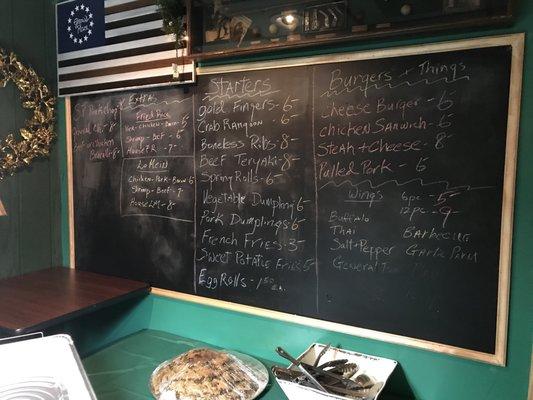 Extras
Fried Rice
Pork - Chicken - Bacon
Shrimp - Beef - 6
House F.R. - 7
Lo Mein
Chicken - Pork - Bacon - 6
Shrimp - Beef - 7
House LM - 8
Starters
gold Fingers - 6
Crab Rangoon - 6
Boneless Ribs - 8
Beef Teryaki - 8
Spring Rolls - 6
Vegetable Dumpling - 6
Pork Dumplings - 6
French Fries - 3
Sweet Potatoe Fries - 5
Egg Rolls - 1.50 ea.
Burgers + Things
Cheese Burger - 6
chicken Sanwich - 6
Steak + Cheese - 8
Pulled Pork 6
Wings 6pc - 5
12pc - 9
Buffalo
Thai Barbecue
Salt + Pepper Garlic Parm
General T